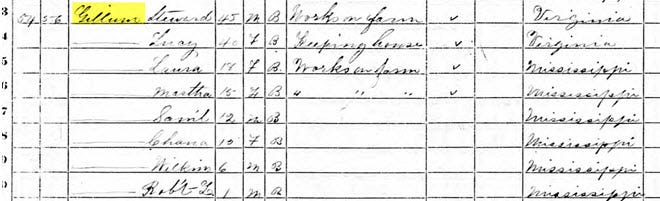 3 54 56 Gillum Steward 45 M B Works on farm ✓ Virginia
4 —— Lucy 40 F B Keeping house ✓ Virginia
5 —— Laura 17 F B Works on farm ✓ Mississippi
6 —— Martha 15 F B " " " ✓ Mississippi
7 —— 12 M B Mississippi
8 —— 10 F B Mississippi
9 —— 6 M B Mississippi
—— Robt 1 M B Mississippi